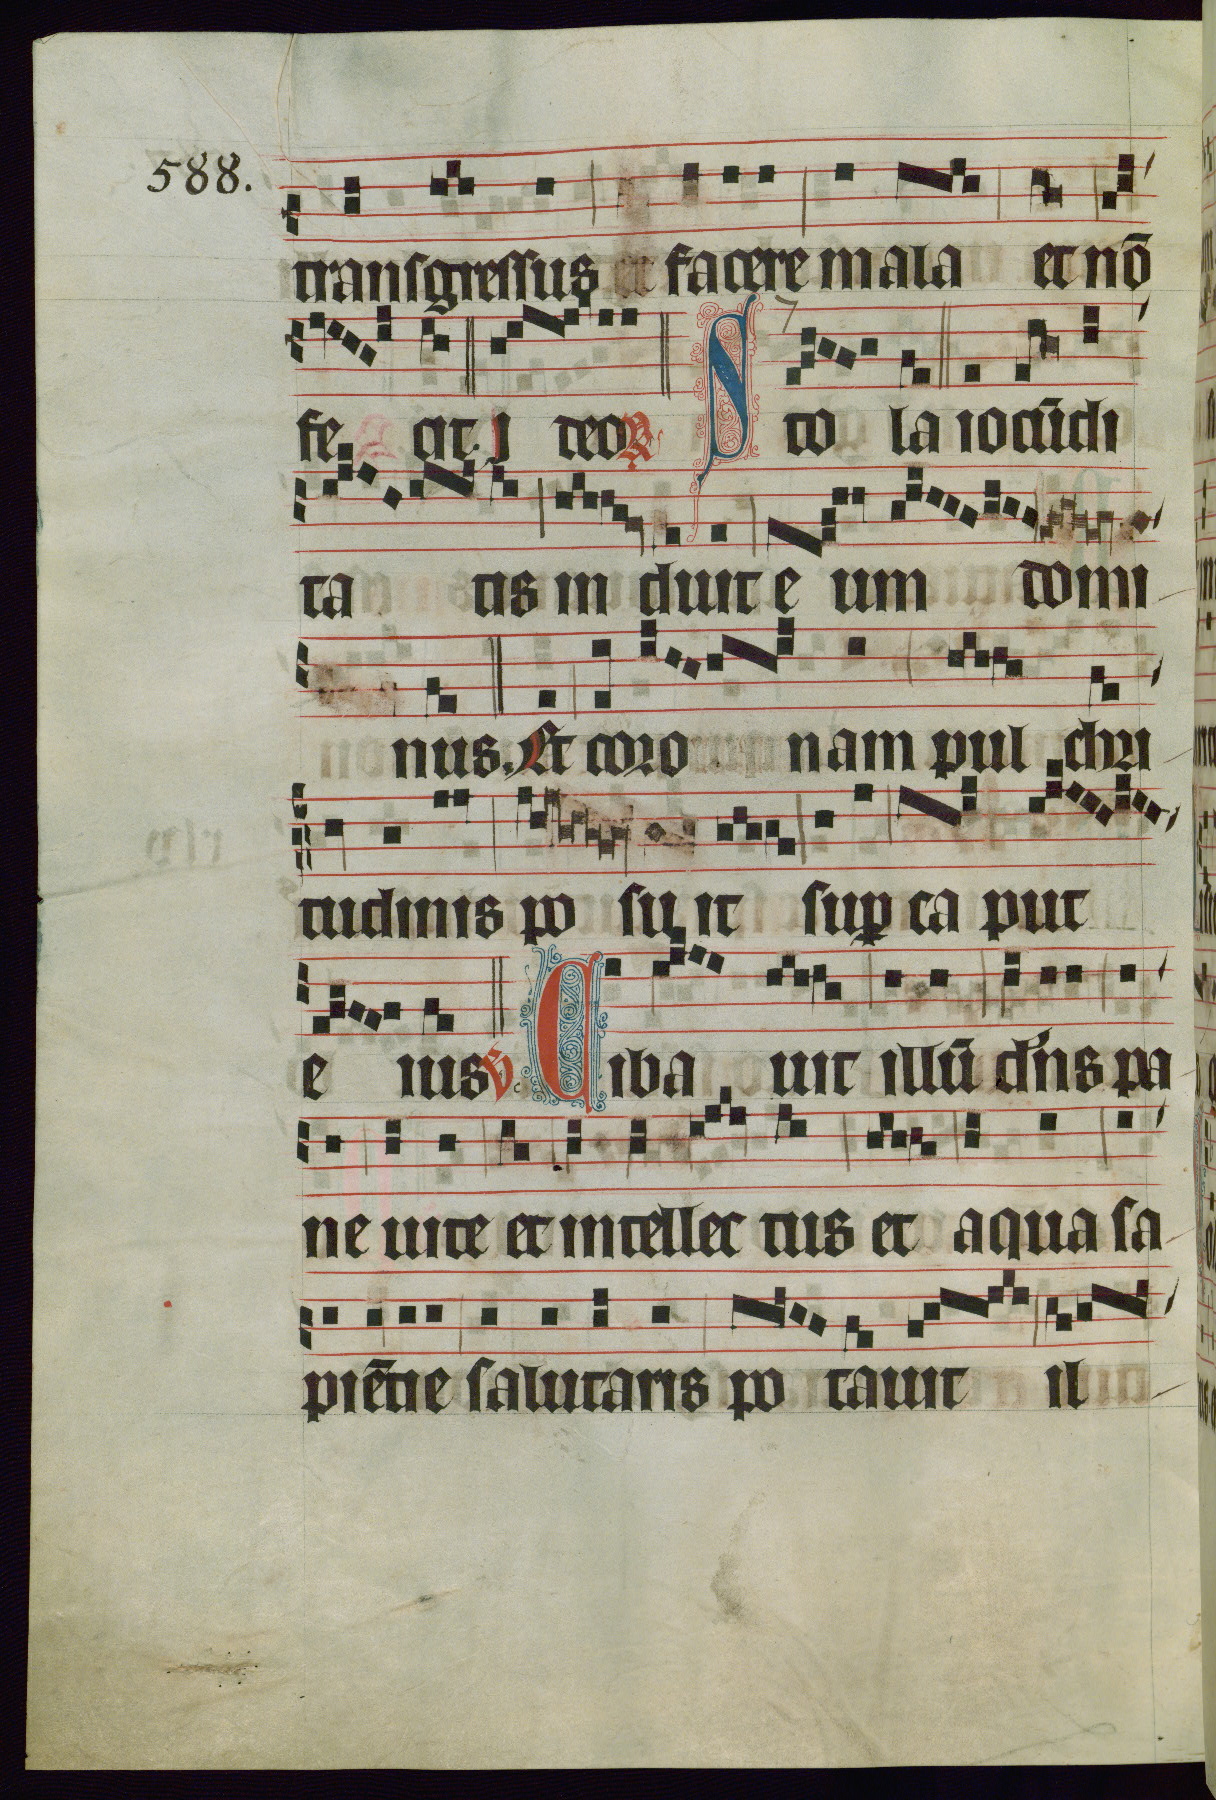 588.
transgressus et facere mala et nō
fe cit. J deo R̷ S to la iocūdi
ta tis in duit e um domi
nus. Et coro nam pul chri
tudinis po su it sup ca put
e ius V̷. Ciba uit illū dn̄s pa
ne uite et intellec tus et aqua sa
piētie salutaris po tauit il